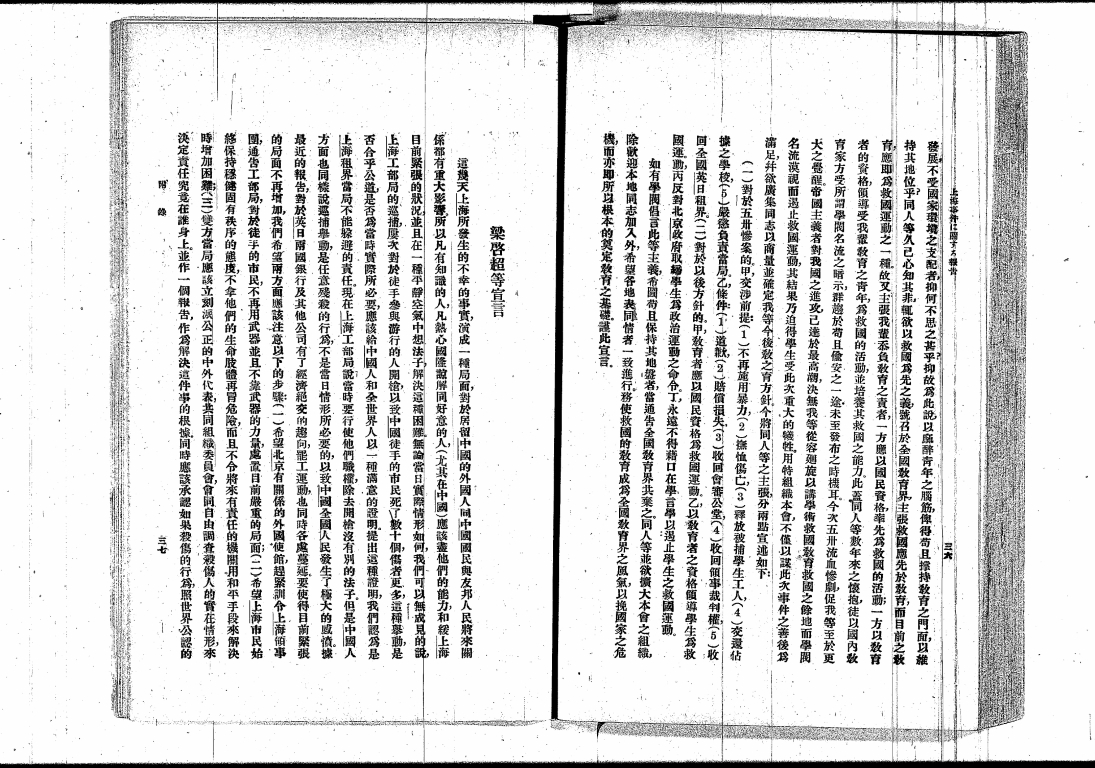 上海事件に關する報告
三六
發展、不受國家環境之支配者、抑何不思之甚乎、抑故爲此說、以麻醉青年之腦筋、俾得苟且撐持教育之門面、以維
持其地位乎、同人等久已心知其非、輒欲以救國爲先之義、號召於全國教育界、主張救國應先於教育、而目前之教
育、應即爲救國運動之一種、故又主張我輩忝負教育之責者、一方應以國民資格、率先爲救國的活動、一方以教育
者的資格、領導受我輩教育之青年、爲救國的活動、並培養其救國之能力、此蓋同人等數年來之懷抱、徒以國內教
育家方受所謂學閥名流之暗示、群趨於苟且偷安之一途、未至發布之時機耳、今次五卅流血慘劇、促我等至於更
大之覺醒、帝國主義者對我國之進攻、已達於最高潮、決無我等從容廻旋、以講學術救國教育救國之餘地、而學閥
名流、漠視而遏止救國運動、其結果乃迫得學生受此次重大的犧牲、用特組織本會、不僅以謀此次事件之善後爲
滿足、幷欲廣集同志、以商量並確定我等今後教之育方針、今將同人等之主張、分兩點宣述如下、
(一)對於五卅慘案的、甲交涉前提、(1)不再施用暴力、(2)撫恤傷亡、(3)釋放被捕學生工人、(4)交還佔
據之學校、(5)嚴懲負責當局、乙條件、(1)道歉、(2)賠償損失、(3)收回會審公堂、(4)收回領事裁判權、(5)收
回全國英日租界、(二)對於以後方針的、甲、教育者應以國民資格爲救國運動、乙以教育者之資格領導學生爲救
國運動、丙反對北京政府取締學生爲政治運動之命令、丁、永遠不得藉口在學言學以遏止學生之救國運動。
如有學閥倡言此等主義、希圖苟且保持其地盤者、當通告全國教育界共棄之、同人等並欲擴大本會之組織、
除歡迎本地同志加入外、希望各地表同情者一致進行、務使救國的教育、成爲全國教育界之風氣、以挽國家之危
機、而亦即所以根本的奠定教育之基礎、謹此宣言。
梁啓超等宣言
這幾天上海所發生的不幸的事實、演成一種局面、對於居留中國的外國人、同中國國民與友邦人民將來關
係都有重大影響、所以凡有知識的人、凡熱心國際諒解同好意的人(尤其在中國)應該盡他們的能力和緩上海
目前緊張的狀況、並且在一種平靜空氣中、想法子解決這種困難、無論當日實際情形如何、我們可以無成見的說、
上海工部局的巡捕屢次對於徒手參與游行的人開槍、以致中國徒手的市民死了數十個、傷者更多、這種舉動是
否合乎公道、是否爲當時實際所必要、應該給中國人和全世界人以一種滿意的證明、提出這種證明、我們認爲是
上海租界當局不能躲避的責任、現在上海工部局說、當時要行使他們職權、除去開槍沒有別的法子、但是中國人
方面也同樣說巡捕舉動是任意殘殺的行爲、不是當日情形所必要的、以致中國全國人民發生了極大的感憤、據
最近的報告、對於英日兩國銀行及其他公司有了經濟絕交的趨向、罷工運動也同時各處蔓延、要使得目前緊張
的局面不再增加、我們希望兩方面應該注意以下的步驟、(一)希望北京有關係的外國使館趕緊訓令上海領事
團、通告工部局、對於徒手的市民、不再用武器、並且不靠武器的力量、處置目前嚴重的局面、(二)希望上海市民始
終保持穩健固有秩序的態度、不拿他們的生命肢體再冒危險、而且不令將來有責任的機關用和平手段來解決
時增加困難、(三)雙方當局應該立刻派公正的中外代表、共同組織委員會、會同自由調查殺傷人的實在情形、來
決定責任究竟在誰身上、並作一個報告、作爲解決這件事的根據、同時應該承認如果殺傷的行爲、照世界公認的
附　錄
三七